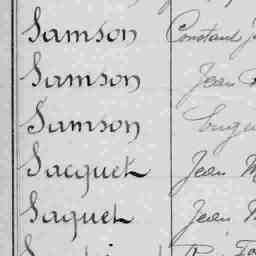 Samson Constant
Samson Jean
Samson
Sacquet Jean M
Saquet Jean